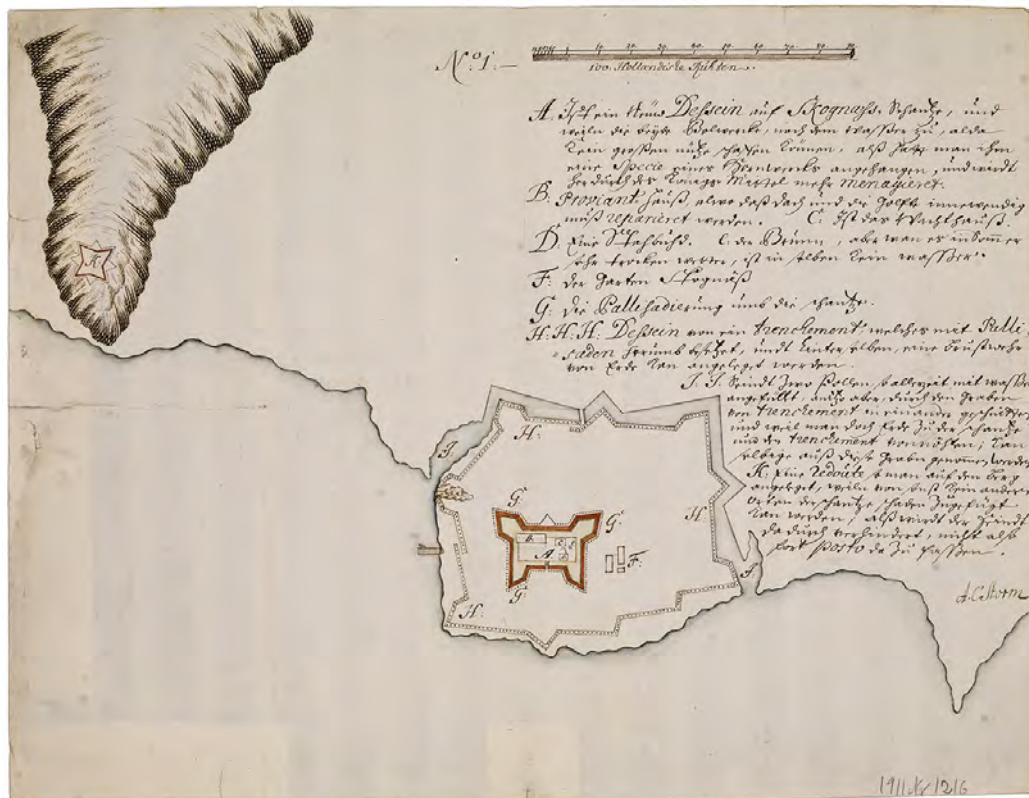 No: 1:
10. 20. 30. 40. 50. 60. 70. 80.
100. Hollandische Ruhten.
A. Ist ein Neüw Dessein auf Skognass Schantze, und
weiln die beÿde Bolwercke, nach dem wasser zu, alda
kein grossen nutze schaffen können, alss hatt man ihm
eine Specie eines Hornwercks angehangen, und wirdt
hierdurch des Königs Mittel mehr menagieret.
B: Proviant Hauss, alwo dass dach und die innewendig
muss repariret werden. C: Ist das Wachthauss.
D. Eine der Brunn, aber wan es in Sommer
sehr trocken wetter, ist in selben kein wasser.
F: der Garten Skognäss
G: die Pallisadierung umb die schantze.
H: H: H: Dessein von ein trenchement, welches mit Palli-
saden besetzet, undt hinter selben, eine brustwehr
von Erde kan angeleget werden.
J. J. Seindt Zwo Pollen, allezeit mit wasser
angefüllt, aber, durch den graben
von trenchement in einander
und weil man doch Erde zu der schantze
und den trenchement vonnöhten; kan
selbige auss diese graben genommen werden
K: Eine redoute man auf den berg
angeleget, weiln von kein andern
orten der schantze schaden zugefügt
kan werden; alss wirdt der Feindt
dadurch verhindert, nicht alss
fort Posto da zu fassen.
A. C. Storm
K
J.
H:
G:
G:
H
b.
A
F:
G:
H:
J:
1911 Nr 1216